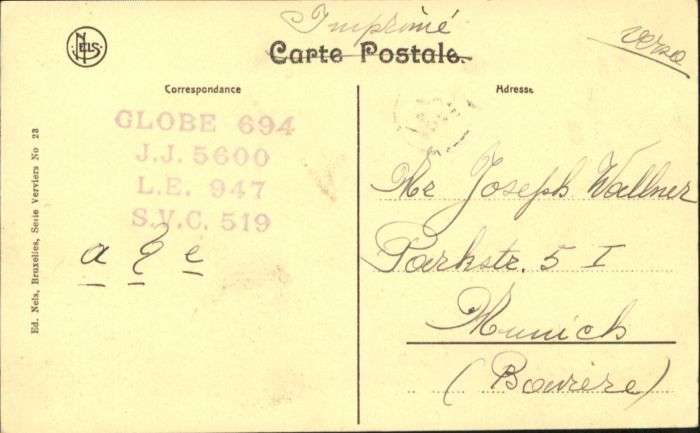 Imprimé
Carte Postale.
verso
NELS
Correspondance
Adresse
GLOBE 694
J.J. 5600
L.E. 947
S.V.C. 519
Mr Joseph Wallner
Parkstr. 5 I
Munich
(Bavière)
Ed. Nels, Bruxelles, Serie Verviers No 23